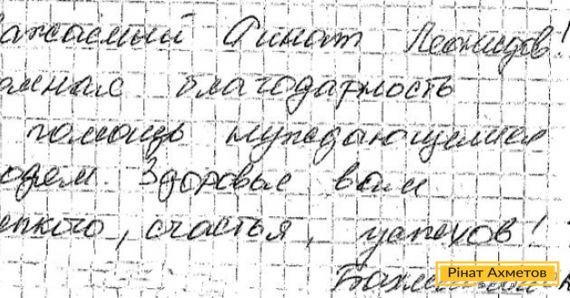 важаемый Ринат Леонидов!
омная благодарность
помощь нуждающимся
юдям. Здоровья вам
епкого, счастья, успехов!
Рінат Ахметов